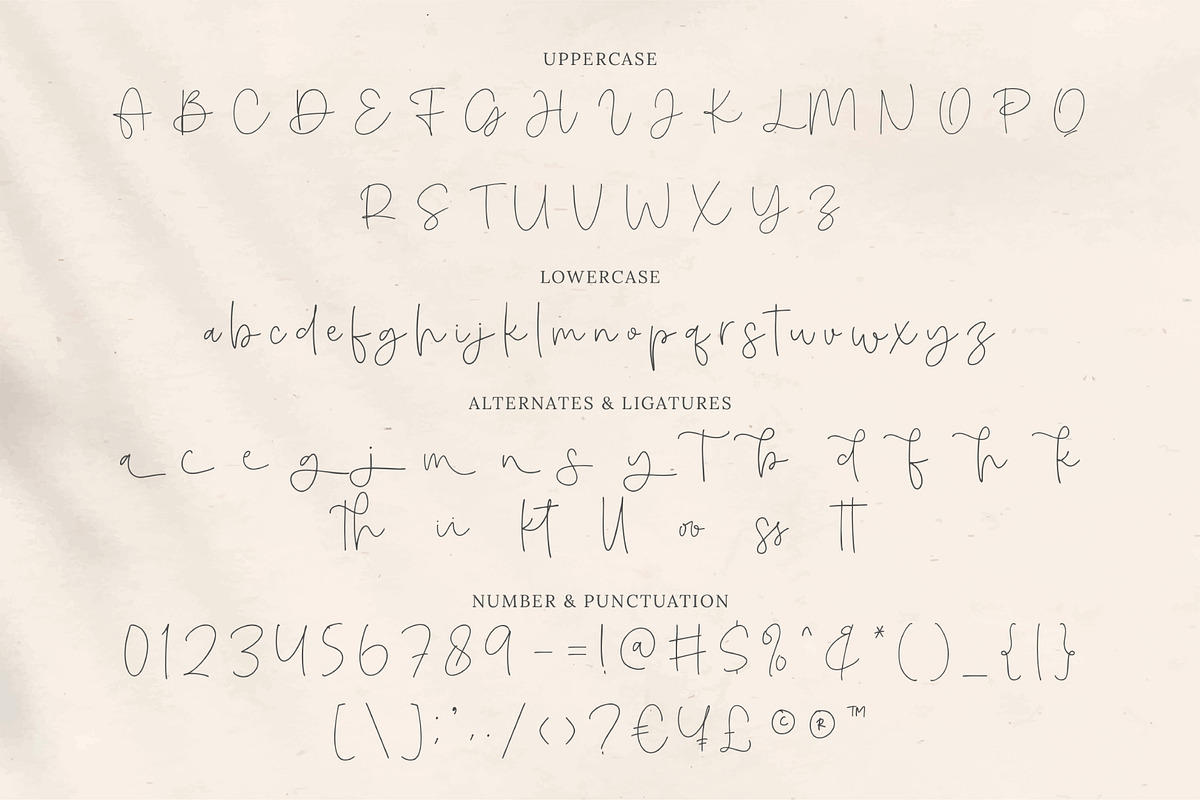 UPPERCASE
A B C D E F G H I J K L M N O P Q
R S T U V W X Y Z
LOWERCASE
a b c d e f g h i j k l m n o p q r s t u v w x y z
ALTERNATES & LIGATURES
a c e g j m n s y T b d f h k
Th ii kt ll oo ss tt
NUMBER & PUNCTUATION
0 1 2 3 4 5 6 7 8 9 - = ! @ # $ % ^ & * ( ) _ { | }
[ \ ] ; ' , . / < > ? € ¥ £ © ® ™